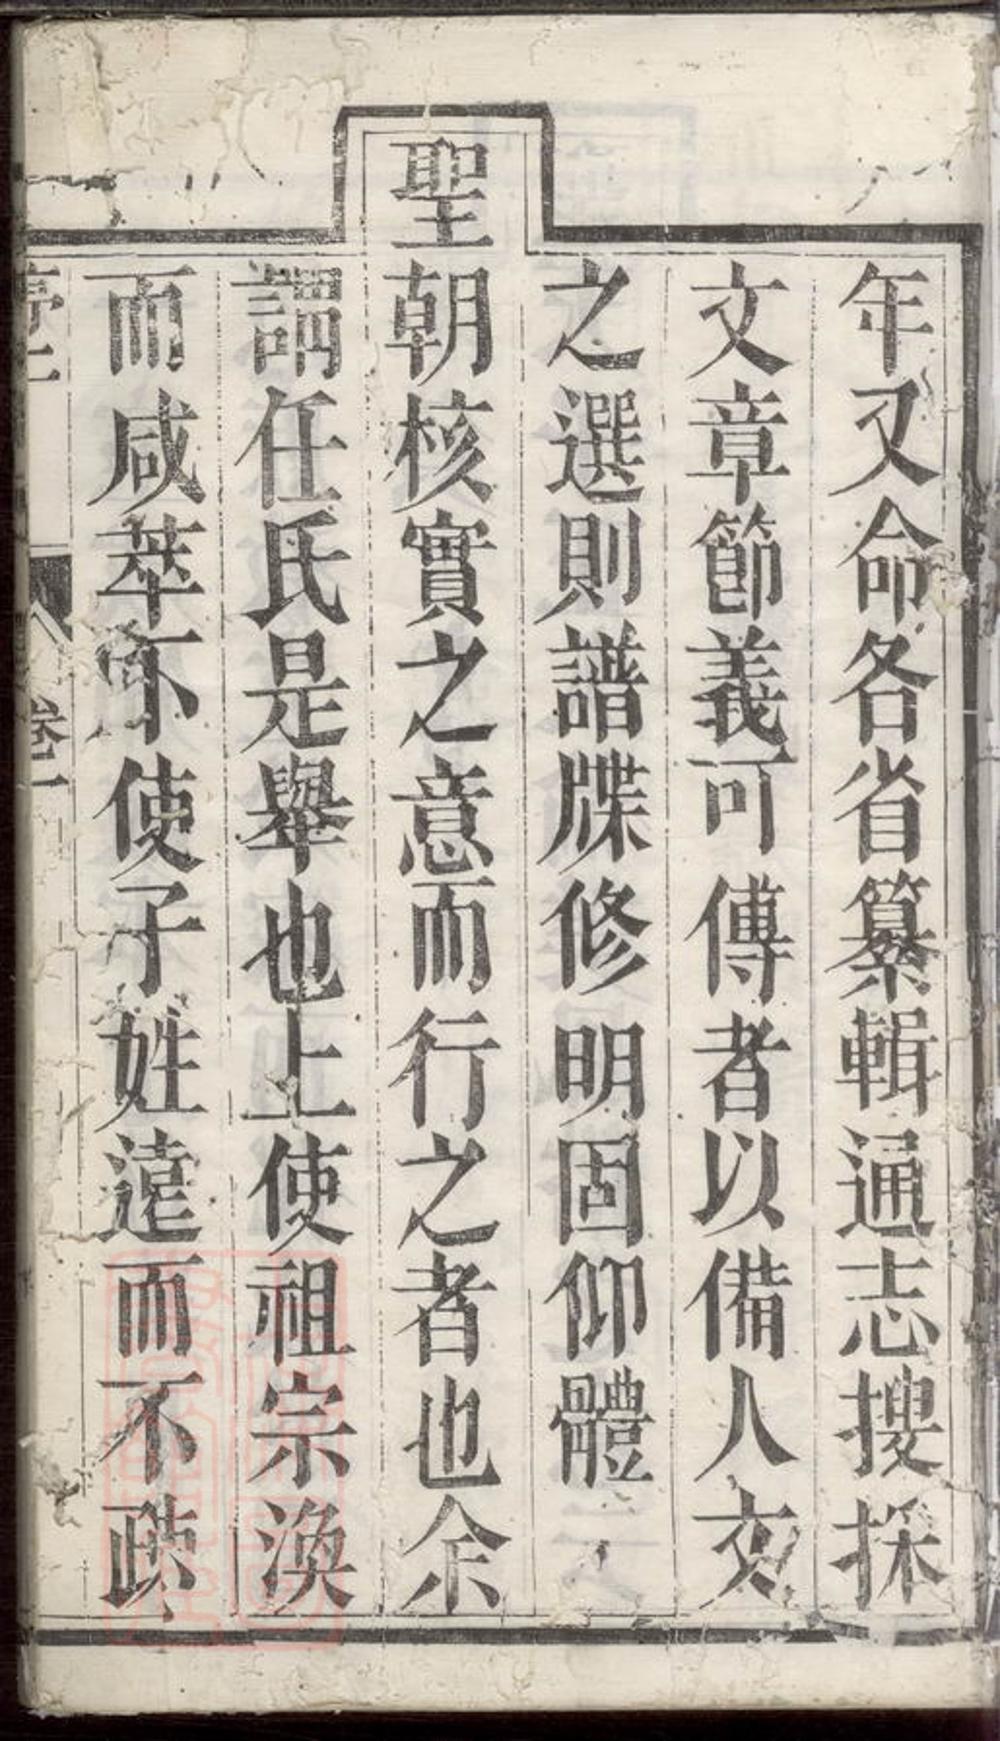 年又命各省纂輯通志搜採
文章節義可傳者以備人文
之選則譜牒修明固仰體
聖朝核實之意而行之者也余
謂任氏是舉也上使祖宗渙
而咸萃下使子姓遠而不疎
卷一